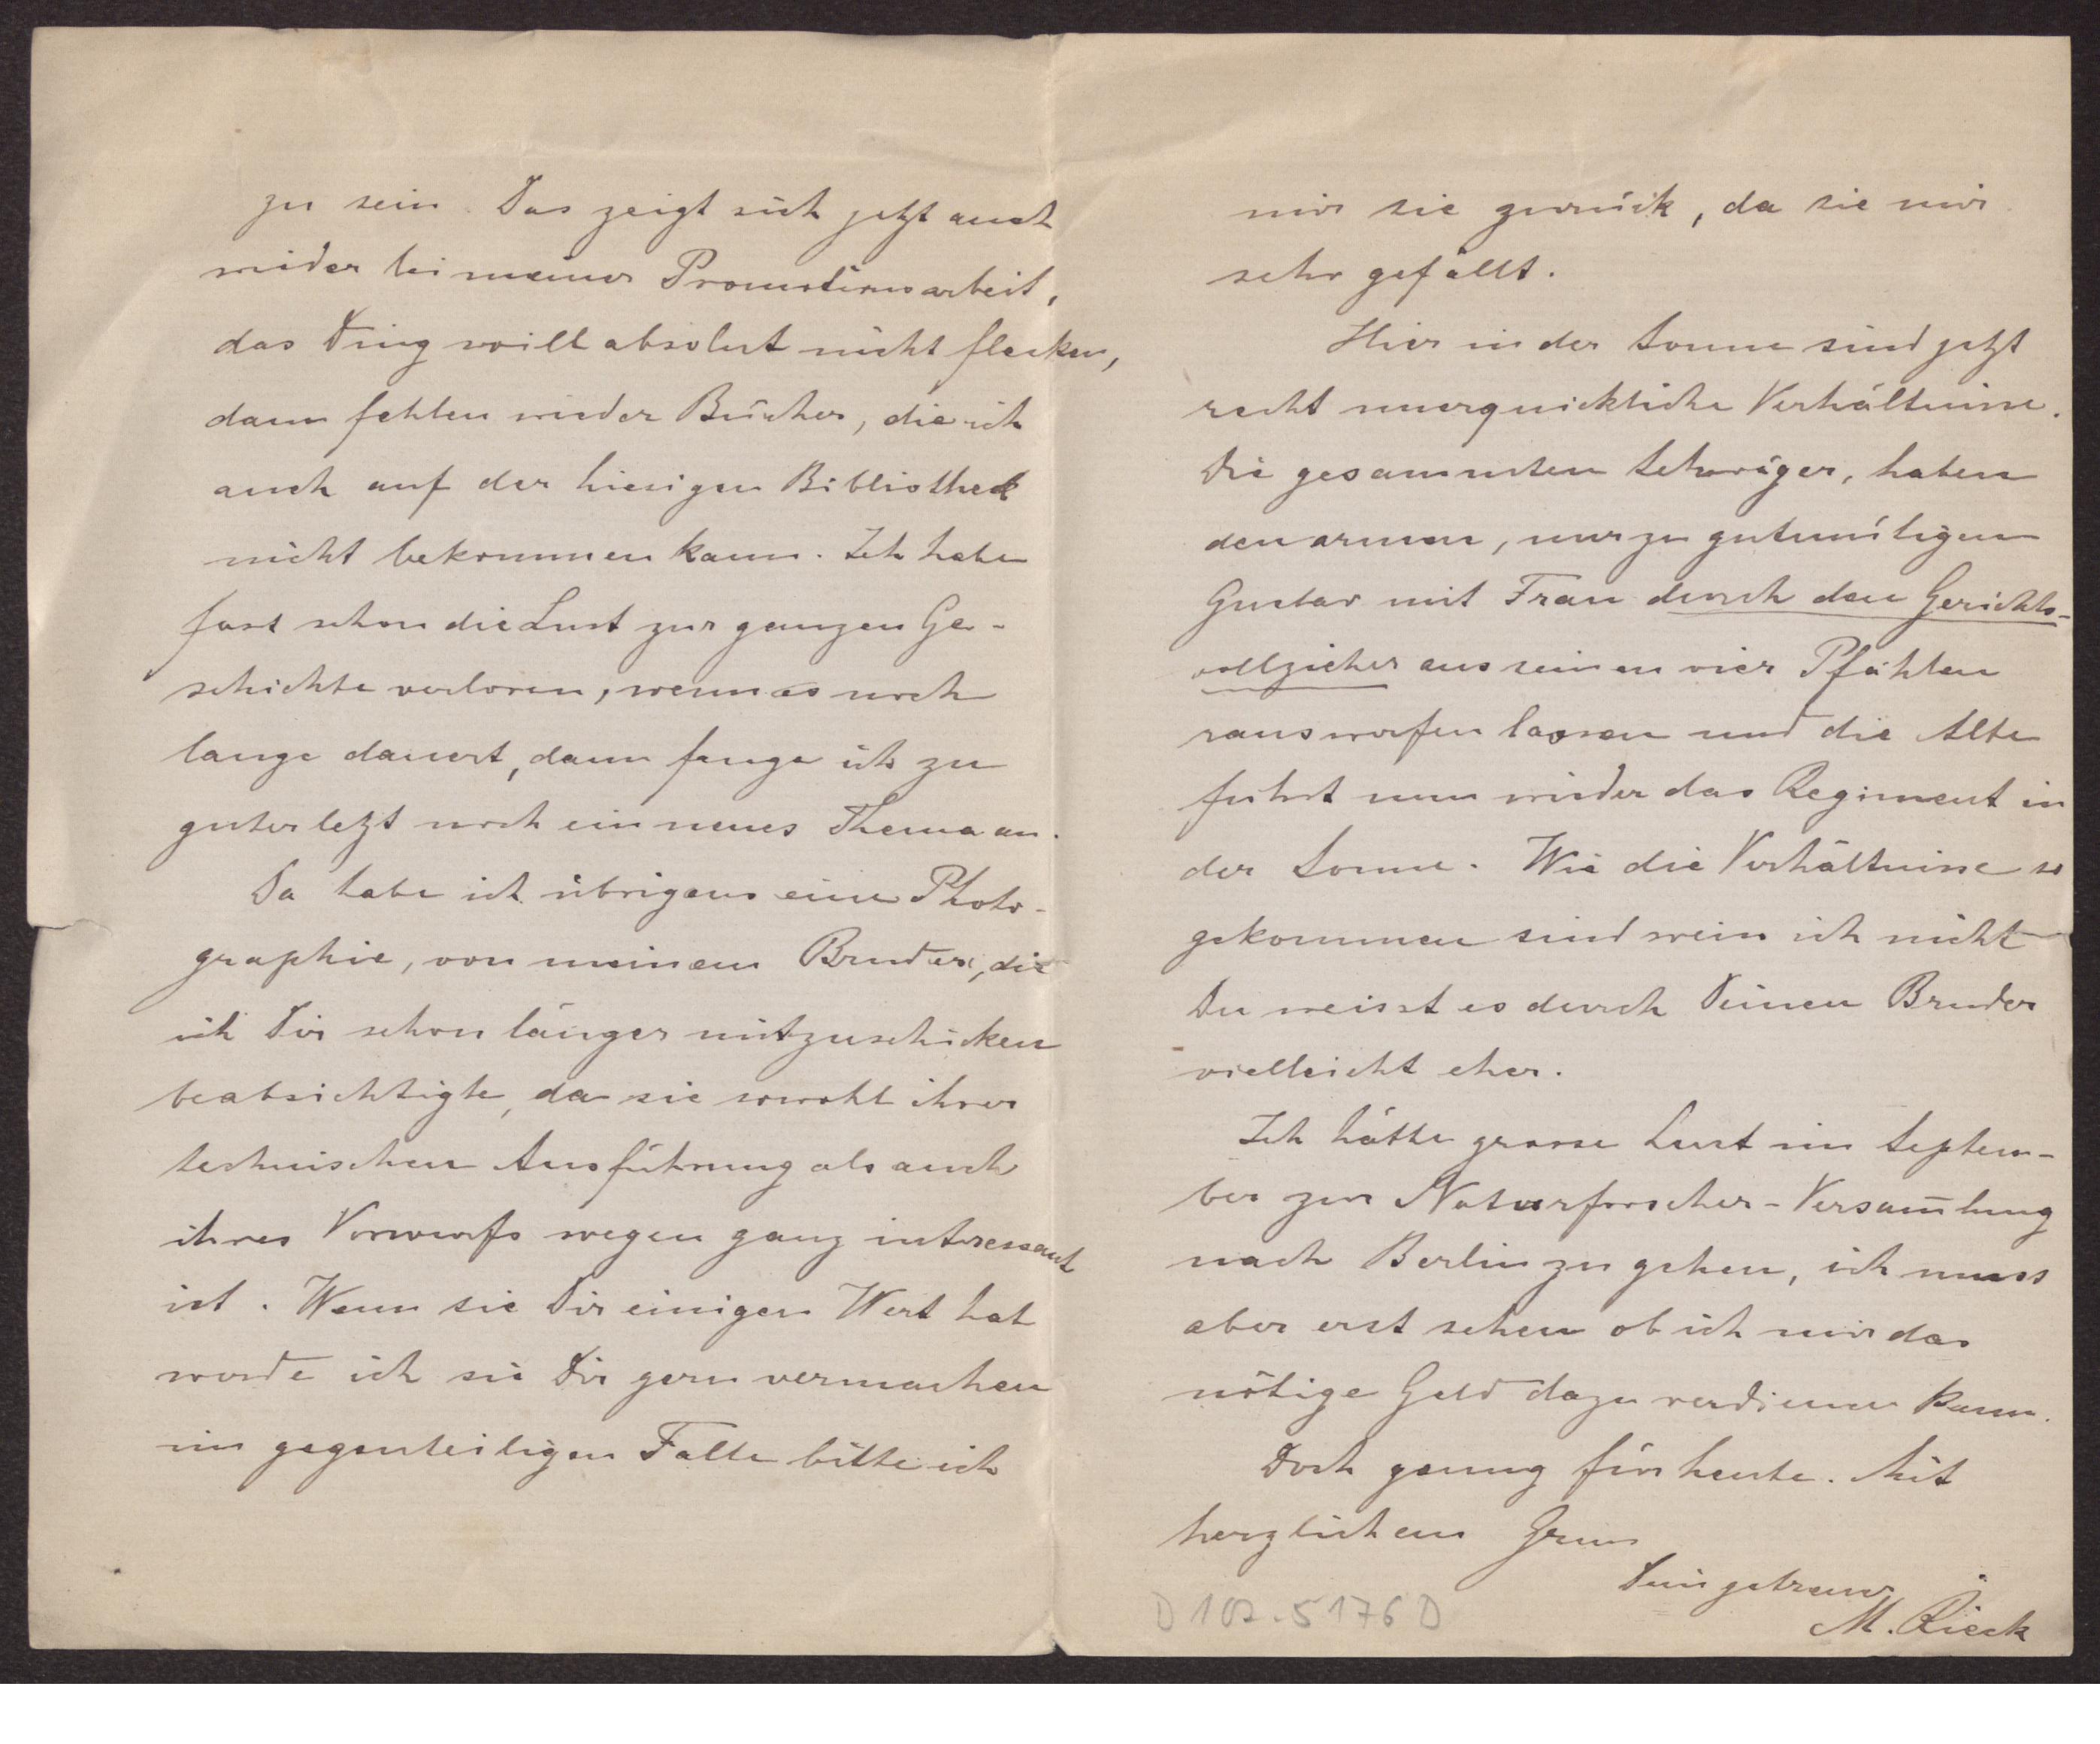 zu sein. Das zeigt sich jetzt auch
wider bei meiner Promotionsarbeit,
das Ding will absolut nicht flecken,
dann fehlen wieder Bücher, die ich
auch auf der hiesigen Bibliothek
nicht bekommen kann. Ich habe
fast schon die Lust zur ganzen Ge-
schichte verloren, wenn es noch
lange dauert, dann fange ich zu
guterletzt noch ein neues Thema an.
Da habe ich übrigens eine Photo-
graphie, von meinem Bruder, die
ich Dir schon länger mitzuschicken
beabsichtigte, da sie sowohl ihrer
technischen Ausführung als auch
ihres Vorwurfs wegen ganz intressant
ist. Wenn sie Dir einigen Wert hat
werde ich sie Dir gern vermachen
im gegenteiligen Falle bitte ich
mir sie zurück, da sie mir
sehr gefällt.
Hier in der Sonne sind jetzt
recht unerquickliche Verhältnisse.
Die gesammten Schwäger, haben
den armen, nur zu gutmütigen
Gustav mit Frau durch den Gerichts-
vollzieher aus seinen vier Pfählen
rauswerfen lassen und die Alte
führt nun wieder das Regiment in
der Sonne. Wie die Verhältnisse so
gekommen sind weiss ich nicht
Du weisst es durch Deinen Bruder
vielleicht eher.
Ich hätte grosse Lust im Septem-
ber zur Naturforscher-Versam̄lung
nach Berlin zu gehen, ich muss
aber erst sehen ob ich mir das
nötige Geld dazu verdienen kann.
Doch genug für heute. Mit
herzlichem Gruss
Dein getreuer
M. Rieck
D 107.5176 D